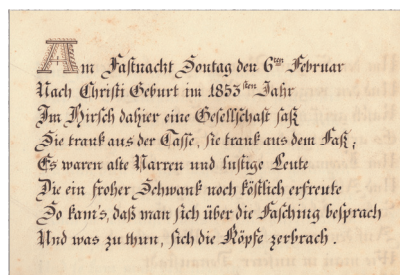 Am Fastnacht Sontag den 6ten Februar
Nach Christi Geburt im 1853sten Jahr
Im Hirsch dahier eine Gesellschaft saß
Sie trank aus der Tasse, sie trank aus dem Faß;
Es waren alte Narren und lustige Leute
Die ein froher Schwank noch köstlich erfreute
So kam's, daß man sich über die Fasching besprach
Und was zu thun, sich die Köpfe zerbrach.